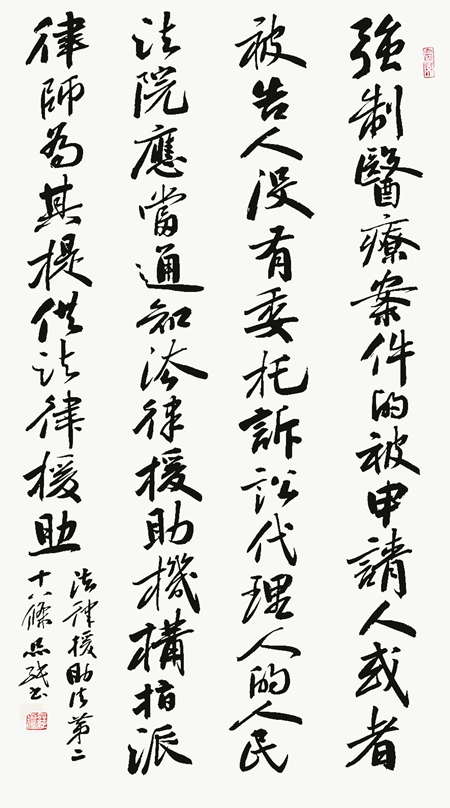 強制醫療案件的被申請人或者
被告人没有委托訴訟代理人的人民
法院應當通知法律援助機構指派
律師為其提供法律援助
法律援助法第二
十八條 書